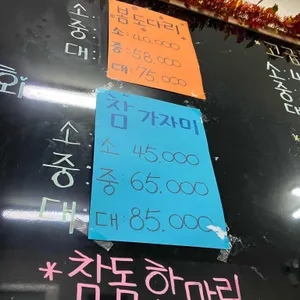 봄도다리
소: 40.000
중: 58.000
대: 75.000
소
중
대
참 가자미
소 45.000
중: 65.000
대: 85.000
소
중
대
*참돔 한마리